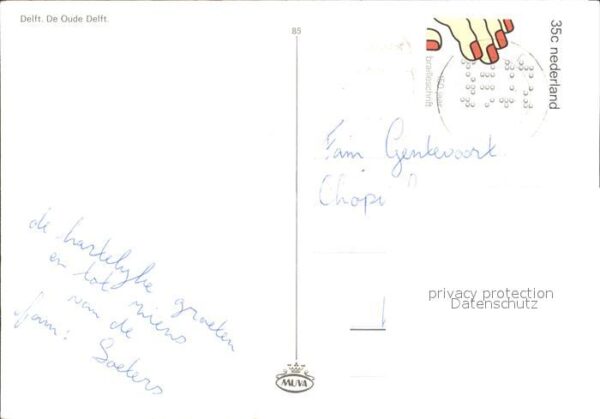 Delft. De Oude Delft.
85
35c nederland
150 jaar
brailleschrift
Fam Genkevoort
Chopi
privacy protection
Datenschutz
de hartelijke groeten
en tot ziens
van de
fam: Soeters
MUVA